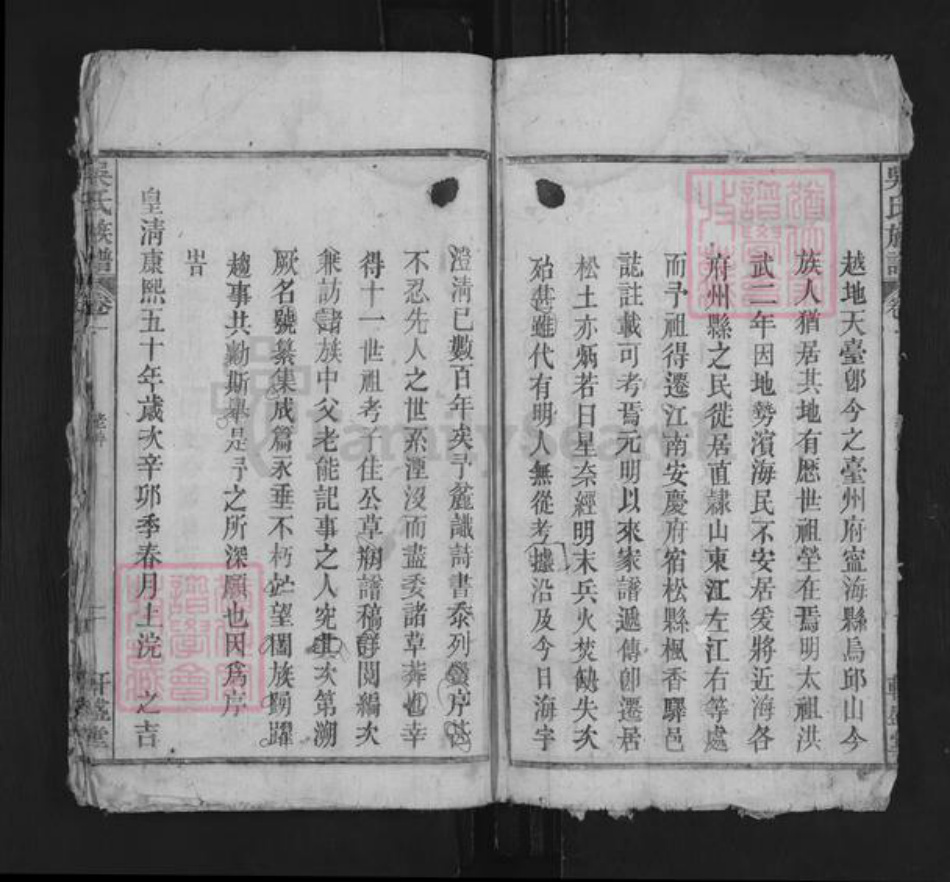 越地天臺卽今之臺州府寧海縣烏邱山今
族人猶居其地有歷世祖塋在焉明太祖洪
武二年因地勢濱海民不安居爰將近海各
府州縣之民徙居直隸山東江左江右等處
而予祖得遷江南安慶府宿松縣楓香驛邑
誌註載可考焉元明以來家譜遞傳卽遷居
松土亦炳若日星奈經明末兵火焚缺失次
殆甚雖代有明人無從考據沿及今日海宇
澄清已數百年矣予麄識詩書忝列黌序
不忍先人之世系湮沒而盡委諸草莽也幸
得十一世祖考子仕公草刱譜稿詳閱編次
兼訪諸族中父老能記事之人究其次第溯
厥名號纂集成篇永垂不朽望闔族踴躍
趨事共勷斯舉是予之所深願也因爲序
旹
皇清康熙五十年歲次辛卯季春月上浣 之吉
吳氏族譜
卷一
二
軒盛堂
FamilySearch